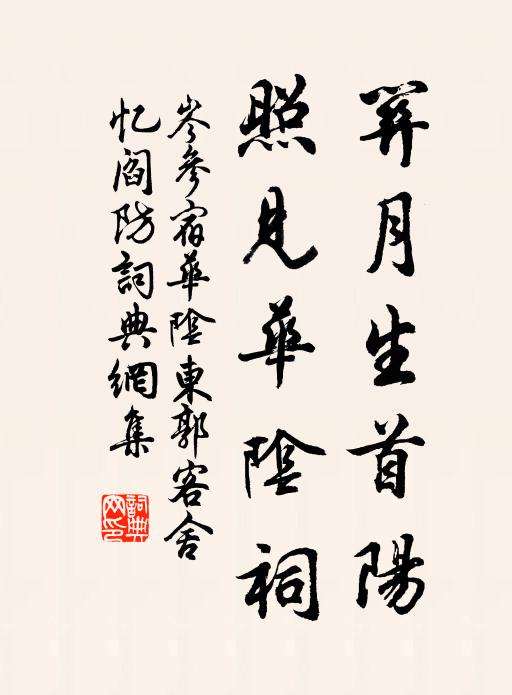 關月生首陽
照見華陰祠
岑參宿華陰東郭客舍
忆閻防詞典網集
詞典網印